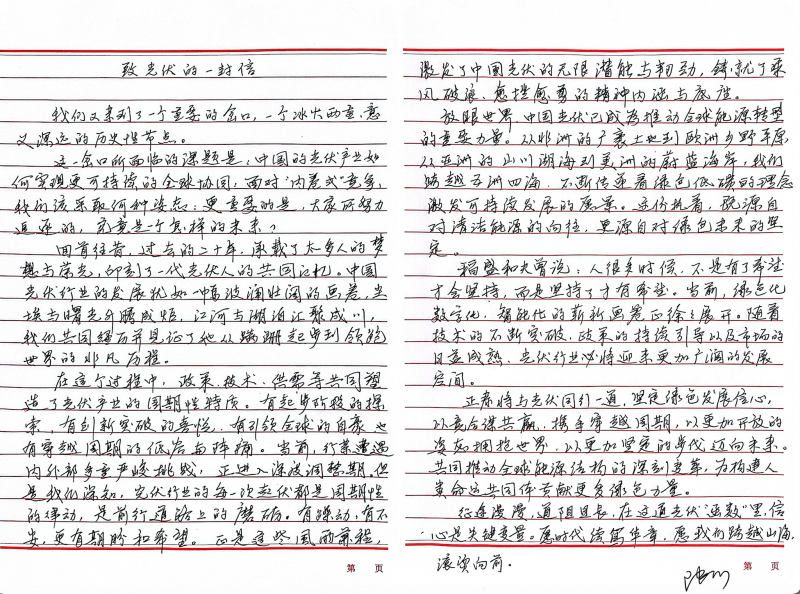 致光伏的一封信
我们又来到了一个重要的当口，一个冰火两重、意
义深远的历史性节点。
这一当口所面临的课题是，中国的光伏产业如
何实现更可持续的全球协同，面对“内卷式”竞争，
我们该采取何种姿态；更重要的是，大家所努力
追逐的，究竟是一个怎样的未来？
回首往昔，过去的二十年，承载了太多人的梦
想与荣光，印刻了一代光伏人的共同记忆。中国
光伏行业的发展犹如一幅波澜壮阔的画卷，尘
埃与曙光升腾成炬，江河与湖泊汇聚成川，
我们共同经历并见证了他从蹒跚起步到领跑
世界的非凡历程。
在这个过程中，政策、技术、供需等共同塑
造了光伏产业的周期性特质。有起步阶段的探
索，有创新突破的喜悦，有引领全球的自豪，也
有穿越周期的低谷与阵痛。当前，行业遭遇
内外部多重严峻挑战，正进入深度调整期，但
是我们深知，光伏行业的每一次起伏都是周期性
的律动，是前行道路上的磨砺。有躁动，有不
安，更有期盼和希望。正是这些风雨兼程，
激发了中国光伏的无限潜能与韧劲，铸就了乘
风破浪、愈挫愈勇的精神内涵与底座。
放眼世界，中国光伏已成为推动全球能源转型
的重要力量。从非洲的广袤土地到欧洲乡野平原，
从亚洲的山川湖海到美洲的蔚蓝海岸，我们
跨越五洲四海，不断传递着绿色低碳的理念
激发可持续发展的愿景。这份执着，既源自
对清洁能源的向往，更源自对绿色未来的坚
定。
稻盛和夫曾说：人很多时候，不是有了希望
才会坚持，而是坚持了才有希望。当前，绿色化
数字化、智能化的崭新画卷正徐徐展开。随着
技术的不断突破、政策的持续引导以及市场的
日益成熟，光伏行业必将迎来更加广阔的发展
空间。
正泰将与光伏同行一道，坚定绿色发展信心，
以竞合谋共赢，携手穿越周期，以更加开放的
姿态拥抱世界，以更加坚定的步伐迈向未来。
共同推动全球能源结构的深刻变革，为构建人
类命运共同体贡献更多绿色力量。
征途漫漫，道阻且长，在这道光伏“函数”里，信
心是关键变量。愿时代续写华章，愿我们跨越山海，
滚烫向前。